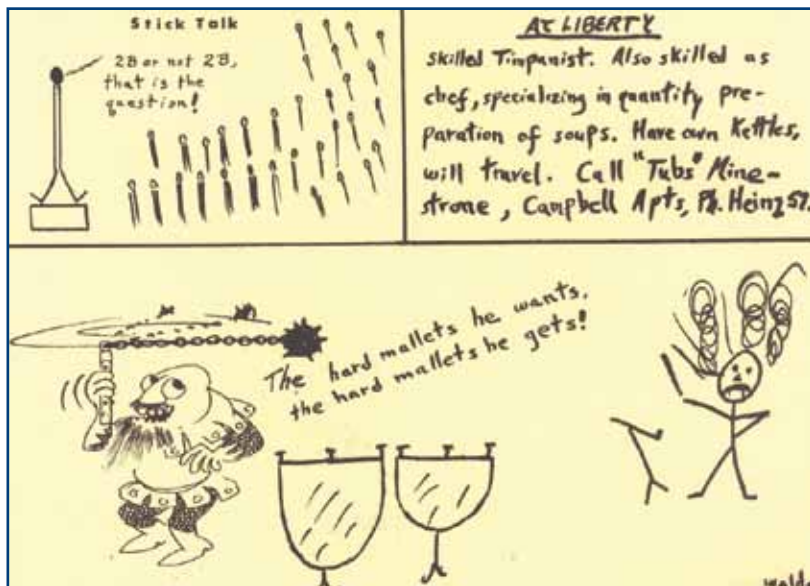 Stick Talk
2B or not 2B,
that is the
question!
AT LIBERTY
skilled Timpanist. Also skilled as
chef, specializing in quantity pre-
paration of soups. Have own Kettles,
will travel. Call "Tubs" Mine-
strone, Campbell Apts, Ph. Heinz 57.
The hard mallets he wants,
the hard mallets he gets!